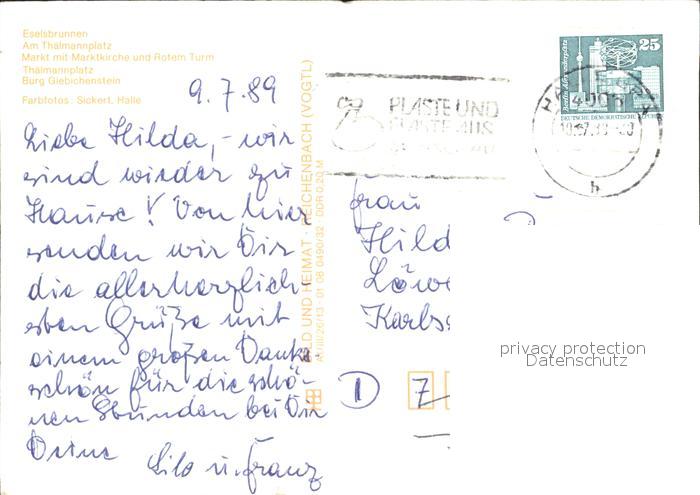 Eselsbrunnen
Am Thälmannplatz
Markt mit Marktkirche und Rotem Turm
Thälmannplatz
Burg Giebichenstein
Farbfotos: Sickert, Halle
9.7.89
Liebe Hilda, - wir
sind wieder zu
Hause! Von hier
senden wir Dir
die allerherzlich
sten Grüße mit
einem großen Danke
schön für die schö-
nen Stunden bei Dir
Deine
Lilo u. Franz
BILD UND HEIMAT · REICHENBACH (VOGTL)
A1/III/26/13 01 08 0490/32 DDR 0,20 M
PLASTE UND
ELASTE AUS
25
Berlin, Alexanderplatz
DEUTSCHE DEMOKRATISCHE REPUBLIK
HALLE
h
Frau
Hild
Löwe
Karls
D 7
privacy protection
Datenschutz